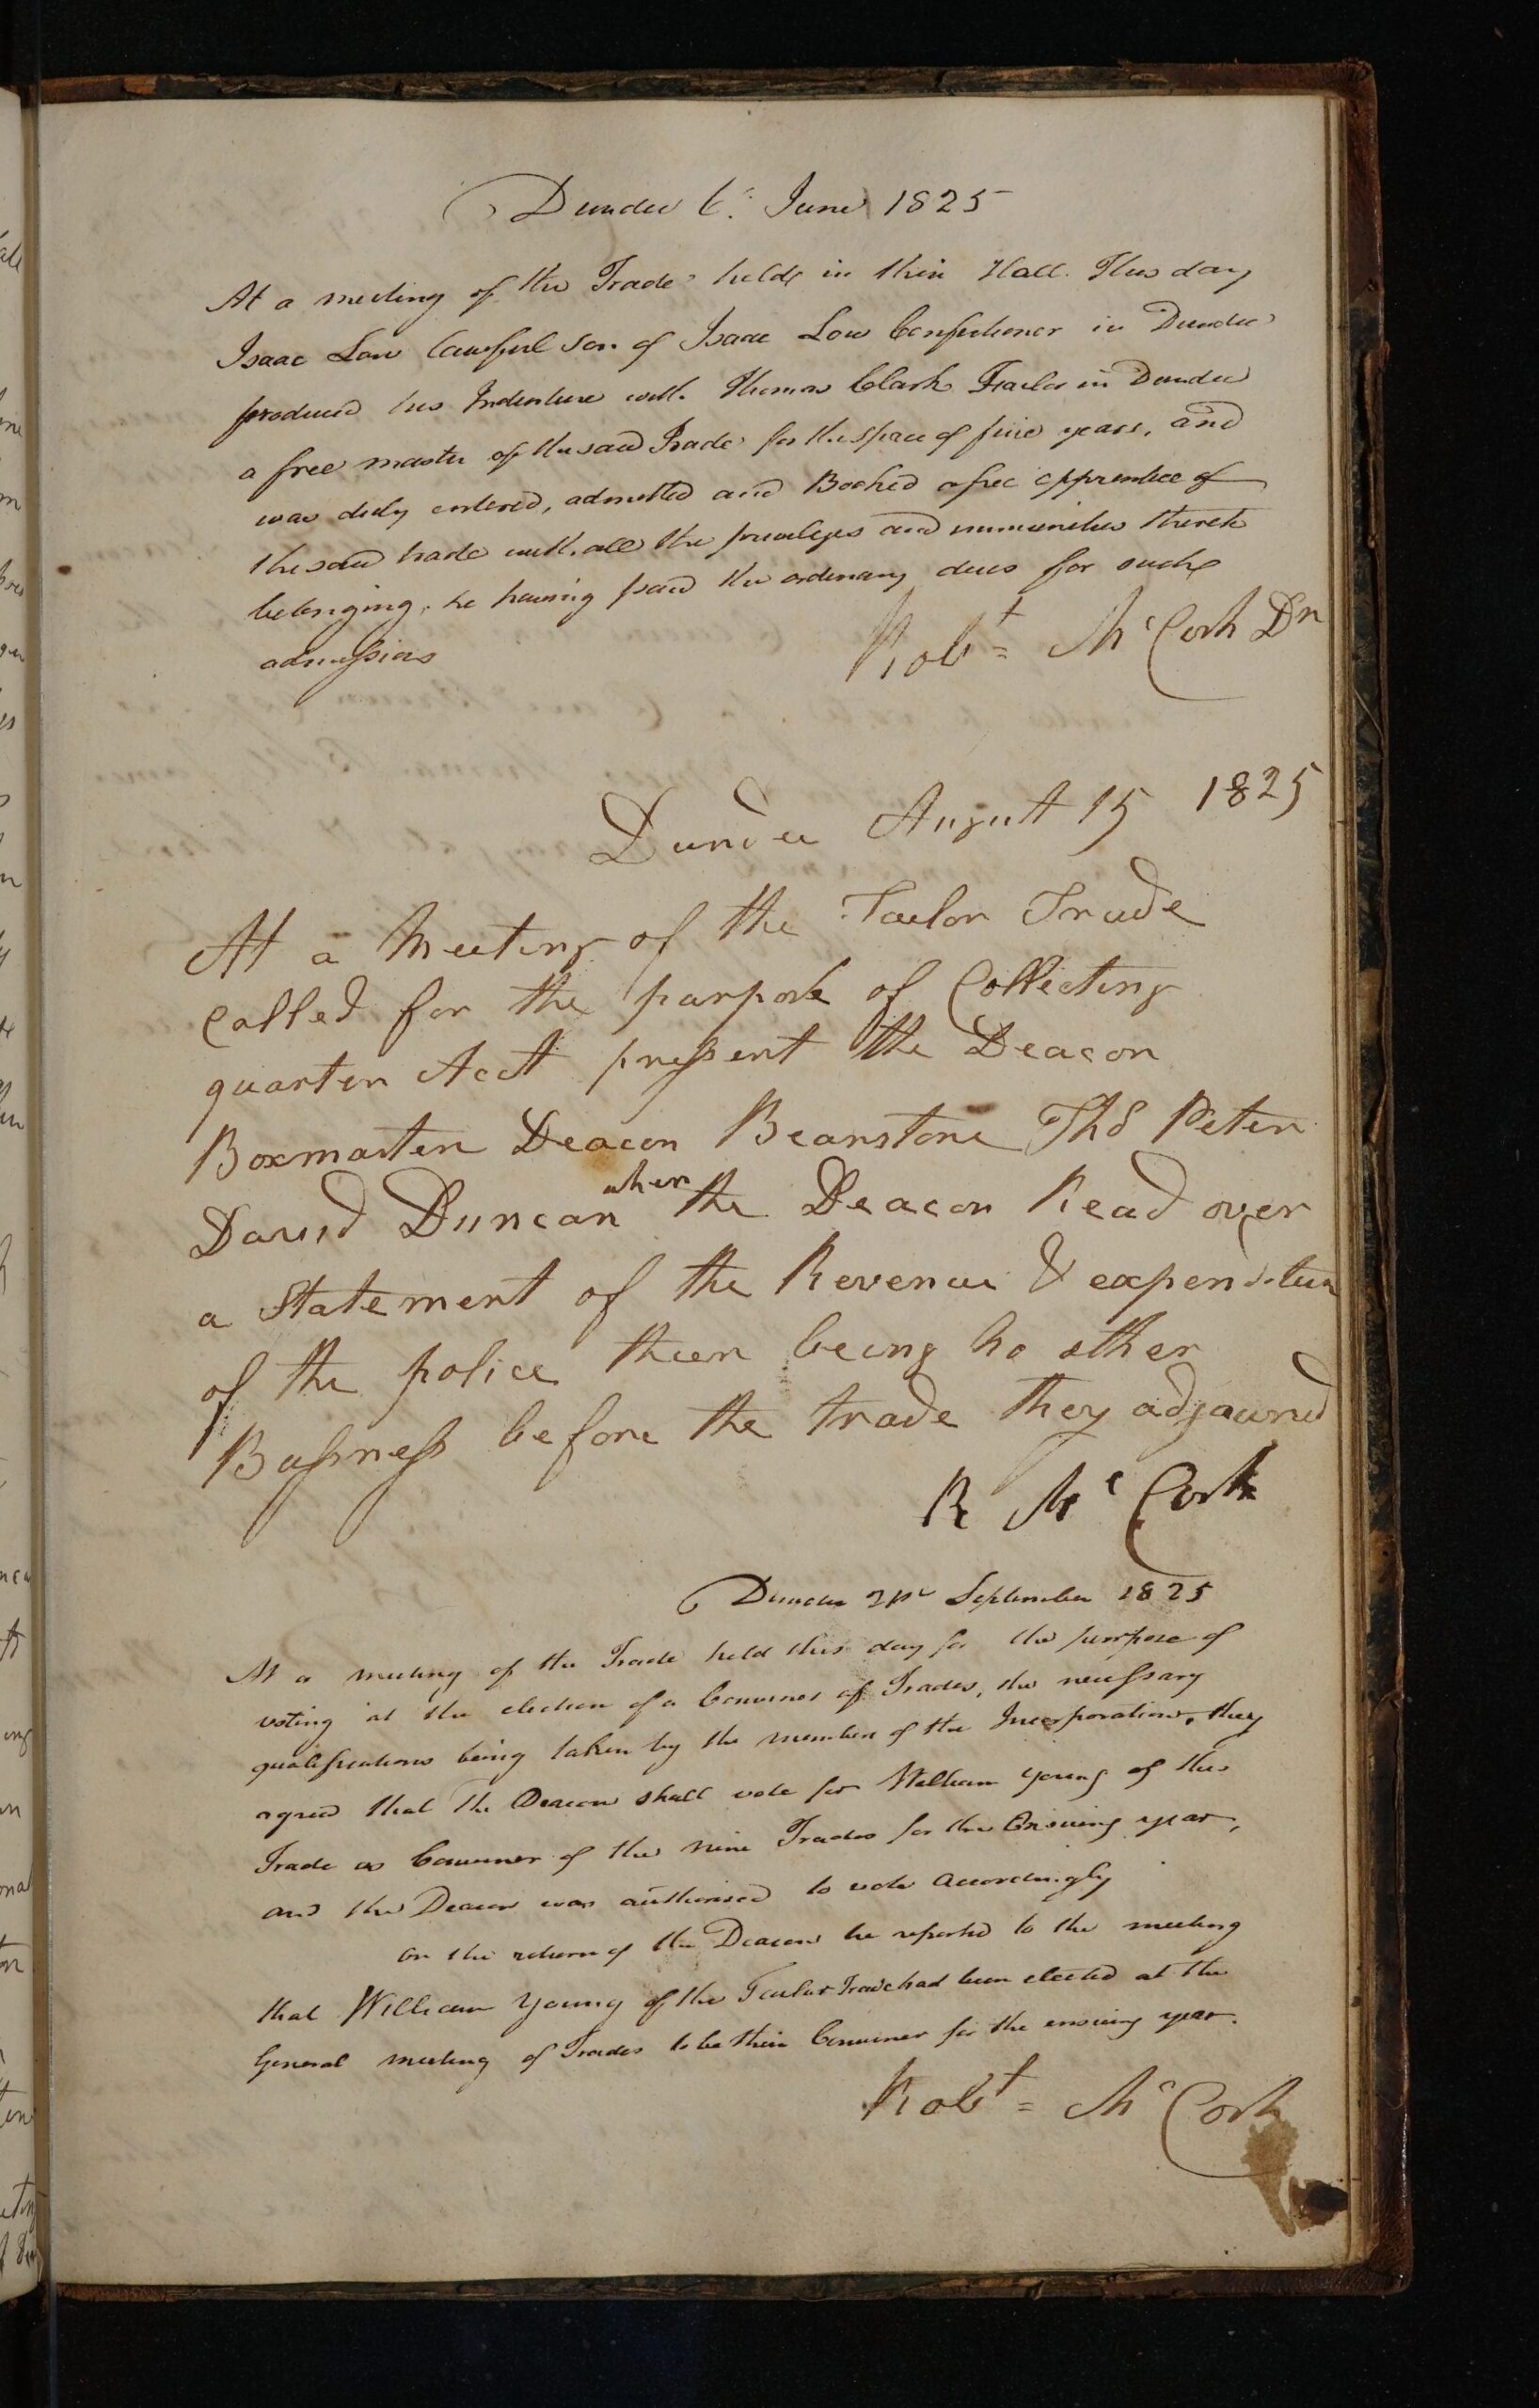 Dundee 6th June 1825
At a meeting of the Trade held in their Hall. This day
Isaac Low lawful son of Isaac Low Confectioner in Dundee
produced his Indenture with Thomas Clark Tailor in Dundee
a free master of the said Trade for the space of five years, and
was duly entered, admitted and Booked a free apprentice of
the said trade with all the privileges and immunities thereto
belonging, he having paid the ordinary dues for such
admission
Robt = McCork Dn
Dundee August 15 1825
At a Meeting of the Taelor Trade
Called for the purpose of Collecting
quarter Act present the Deacon
Boxmaster Deacon Bearstone Ths Peter
David Duncan when the Deacon Read over
a Statement of the Revenue & expenditur
of the police theer being no other
Bussness before the trade they adjaurned
R McCork
Dundee 21st September 1825
At a meeting of the Trade held this day for the purpose of
voting at the election of a Convener of Trades, the necessary
qualifications being taken by the members of the Incorporation, they
agreed that the Deacon shall vote for William Young of this
Trade as Convener of the nine Trades for the Ensuing year,
and the Deacon was authorised to vote accordingly
on the return of the Deacon he reported to the meeting
that William Young of the Taylor Trade had been elected at the
General meeting of Trades to be their Convener for the ensuing year.
Robt = McCork